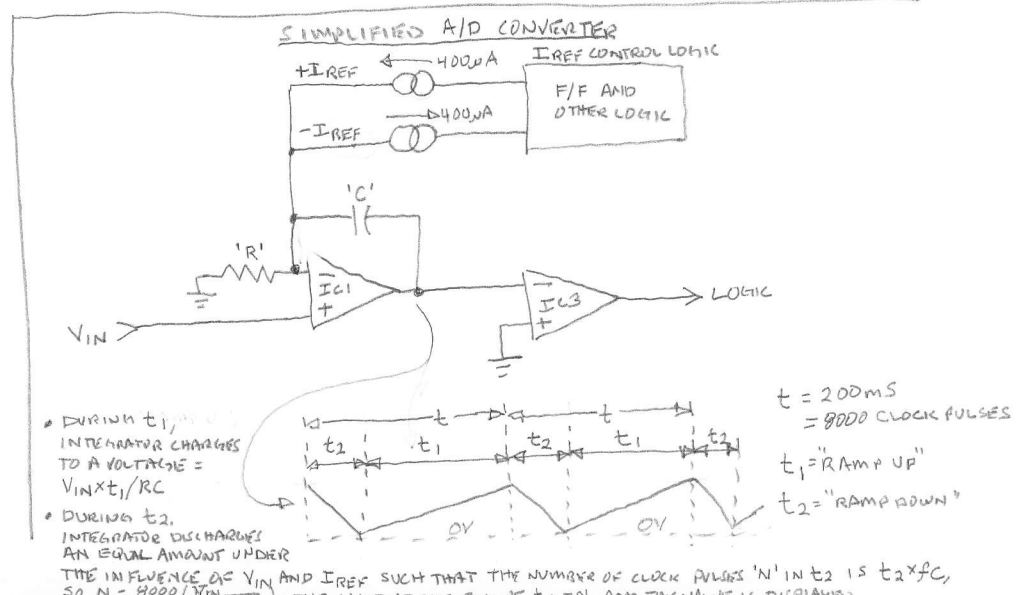 SIMPLIFIED A/D CONVERTER
IREF CONTROL LOGIC
+IREF
400µA
F/F AND
OTHER LOGIC
400µA
-IREF
'C'
'R'
−
IC1
+
−
IC3
+
LOGIC
VIN
t = 200mS
= 8000 CLOCK PULSES
t t
t2 t1 t2 t1 t2
t1="RAMP UP"
t2="RAMP DOWN"
0V 0V
• DURING t1,
INTEGRATOR CHARGES
TO A VOLTAGE =
VIN×t1/RC
• DURING t2,
INTEGRATOR DISCHARGES
AN EQUAL AMOUNT UNDER
THE INFLUENCE OF VIN AND IREF SUCH THAT THE NUMBER OF CLOCK PULSES 'N' IN t2 IS t2×fC,
SO N = 8000